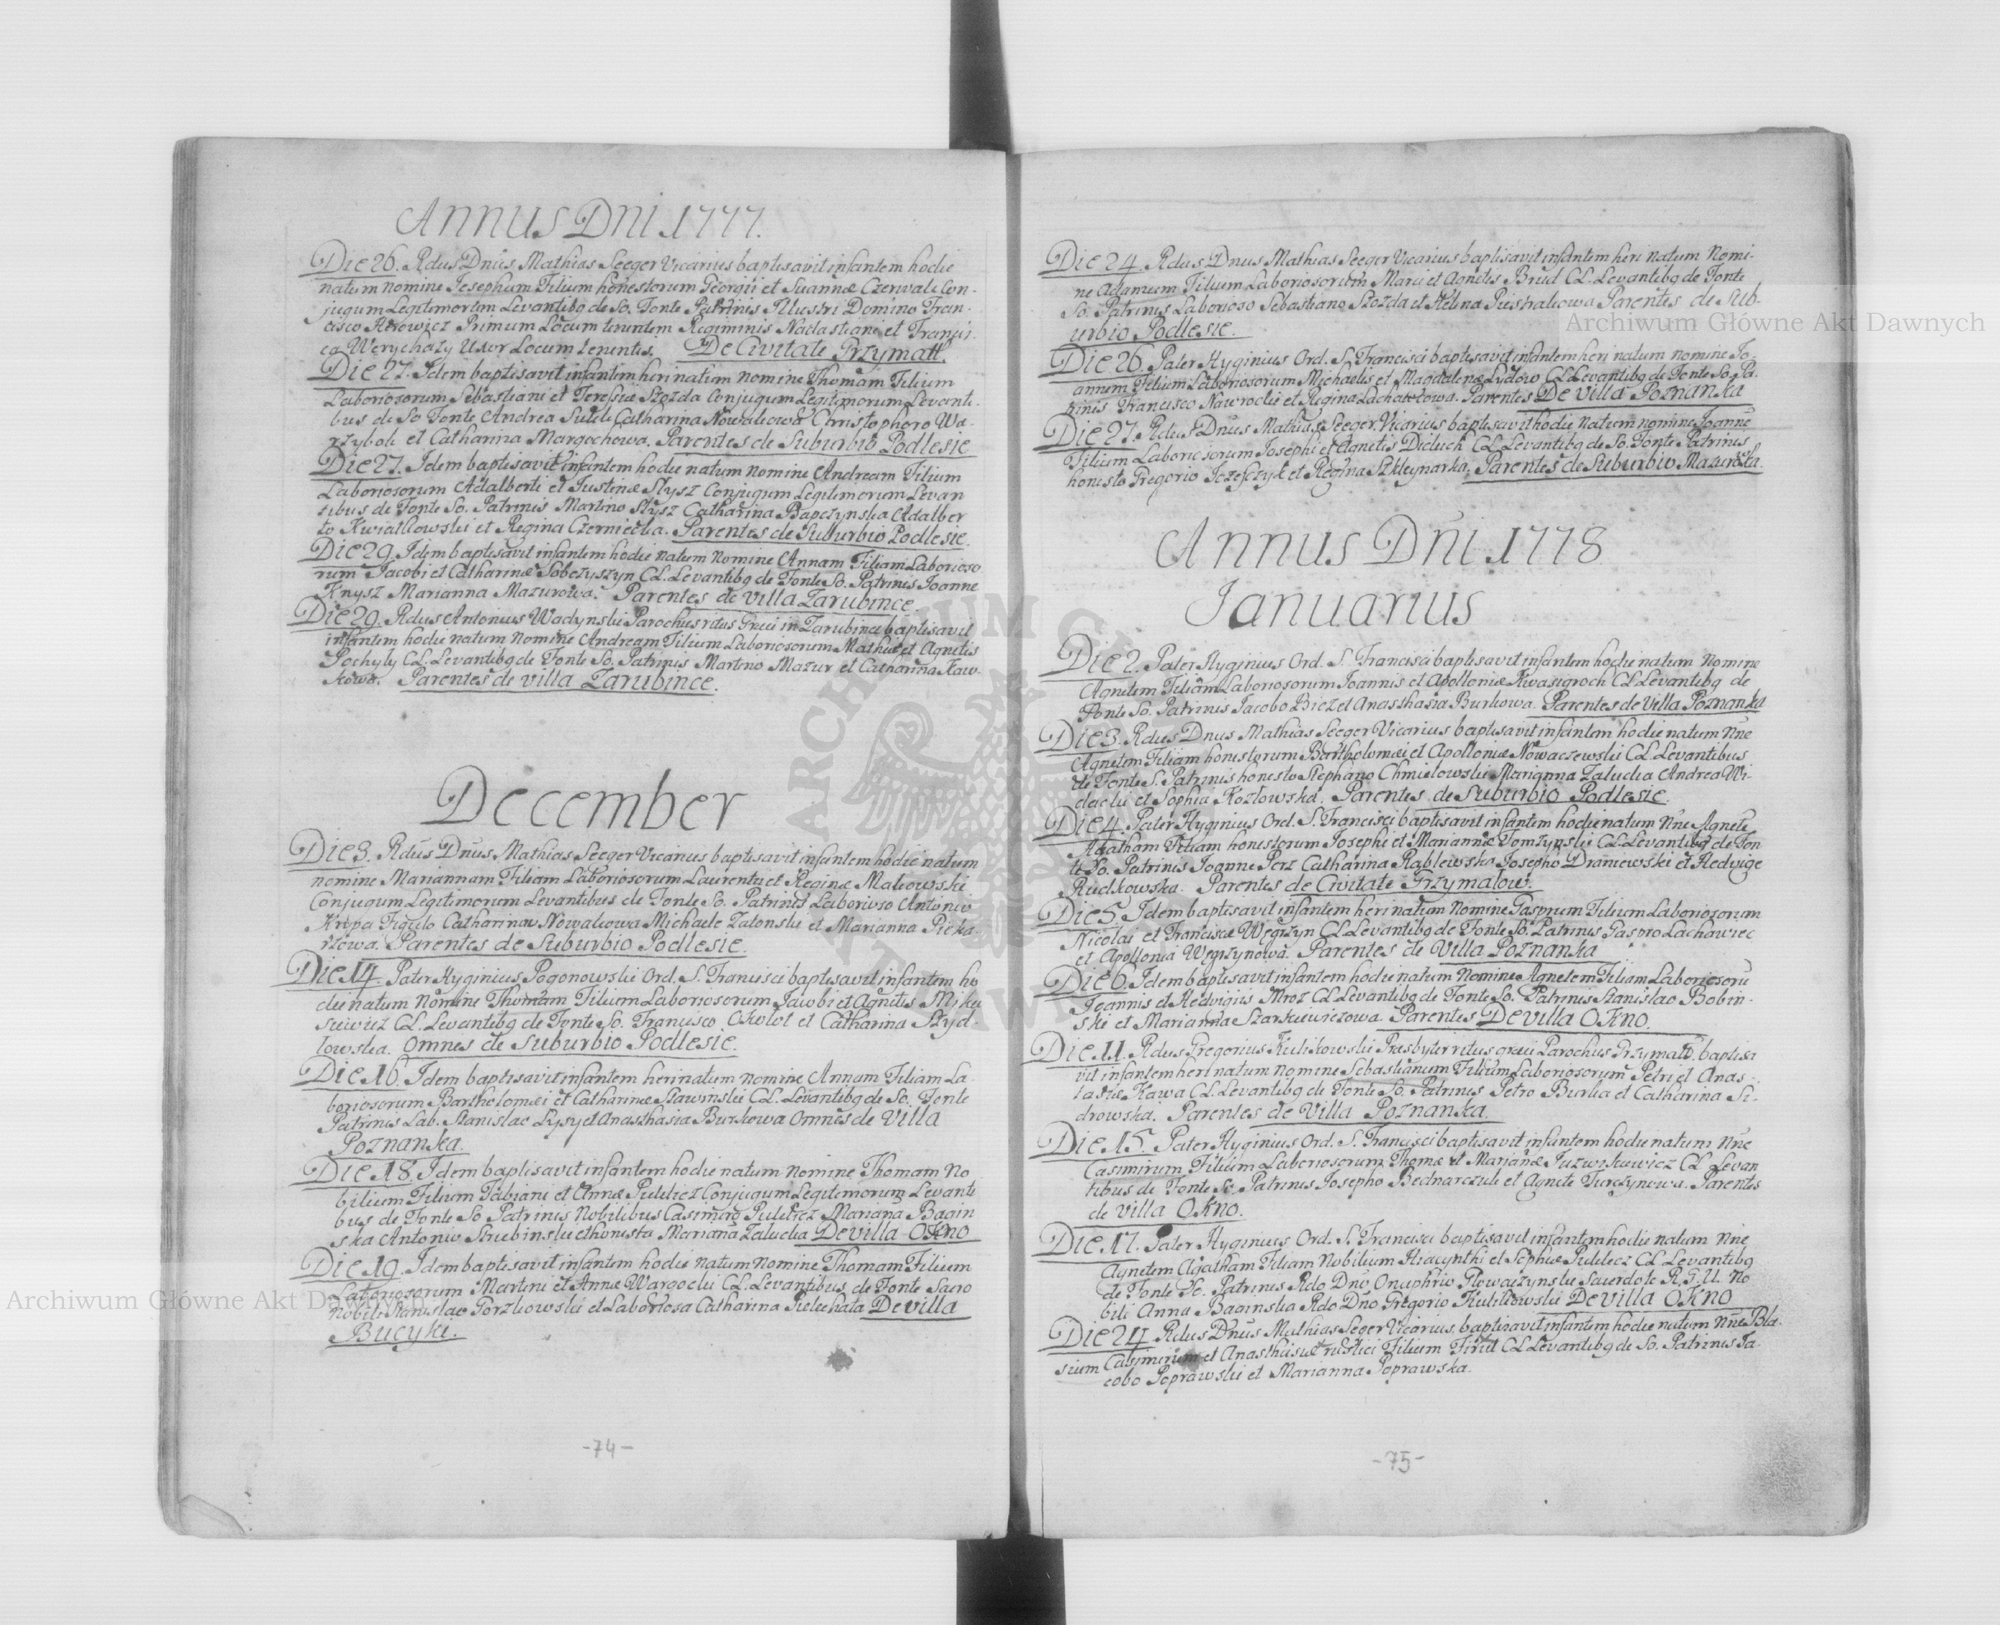 Annus Dni 1777.
Die 26. Rdus Dnus Mathias Seeger Vicarius baptisavit infantem hodie
natum nomine Josephum Filium honestorum Georgii et Suannæ Czerwali Con-
jugum Legitimorum Levantibq de So. Fonte Patrinis Illustri Domino Fran-
cisco Primum Locum tenentem Regiminis et Francis
ca Werychazy Uxor Locum tenentis. De Civitate Grzymatt.
Die 27. Idem baptisavit infantem heri natum nomine Thomam Filium
Laboriosorum Sebastiani et Teressiæ Stozda Conjugum Legitimorum Levanti-
bus de So Fonte Andrea Catharina Nowakowa Christophoro Wa-
rzybok et Catharina Margochowa. Parentes de Suburbio Podlesie
Die 27. Idem baptisavit infantem hodie natum nomine Andream Filium
Laboriosorum Adalberti et Justinæ Slysz Conjugum Legitimorum Levan
tibus de Fonte So. Patrinis Martino Slysz Catharina Bapczynska Adalber
to Kwiatkowski et Regina Czerniecka. Parentes de Suburbio Podlesie.
Die 29. Idem baptisavit infantem hodie natum nomine Annam Filiam Laborioso
rum Jacobi et Catharinæ Sobczyszyn CL. Levantibq de Fonte So. Patrinis Joanne
Knysz Marianna Mazurowa. Parentes de villa Zarubince.
Die 29. Rdus Antonius Wadynski Parochus ritus Græci in Zarubince baptisavit
infantem hodie natum nomine Andream Filium Laboriosorum Mathiæ et Agnetis
Pochyły CL. Levantibq de Fonte So. Patrinis Martino Mazur et Catharina Kaw-
kowa. Parentes de villa Zarubince.
December
Die 3. Rdus Dnus Mathias Seeger Vicarius baptisavit infantem hodie natum
nomine Mariannam Filiam Laboriosorum Laurentii et Reginæ Makowski
Conjugum Legitimorum Levantibus de Fonte So. Patrinis Laborioso Antonio
Krupa Figulo Catharina Nowakowa Michaele Zatonski et Marianna Pieka
rzowa. Parentes de Suburbio Podlesie.
Die 14. Pater Hyginius Pogonowski Ord. S. Francisci baptisavit infantem ho
die natum nomine Thomam Filium Laboriosorum Jacobi et Agnetis Miku
sciewicz CL. Levantibq de Fonte So. Francisco Okolot et Catharina Szyd-
lowska. Omnes de Suburbio Podlesie.
Die 16. Idem baptisavit infantem heri natum nomine Annam Filiam La-
boriosorum Bartholomæi et Catharinæ Slawinski CL. Levantibq de So. Fonte
Patrinis Lab. Stanislao Lysy et Anasthasia Burkowa Omnes de Villa
Poznanka.
Die 18. Idem baptisavit infantem hodie natum nomine Thomam No
bilium Filium Fabiani et Annæ Pulelicz Conjugum Legitimorum Levanti
bus de Fonte So Patrinis Nobilibus Casimiro Pulelicz Mariana Bagin
ska Antonio Skubinski et honesta Mariana Zalucka De villa Okno
Die 19. Idem baptisavit infantem hodie natum nomine Thomam Filium
Laboriosorum Martini et Annæ Wargocki CL. Levantibus de Fonte Sacro
Nobile Stanislao Porzkowski et Laboriosa Catharina Pielechata De villa
Bucyki.
-74-
Die 24. Rdus Dnus Mathias Seeger Vicarius baptisavit infantem heri natum nomi-
ne Adamum Filium Laboriosorum Marci et Agnetis Brud CL. Levantibq de Fonte
So. Patrinis Laborioso Sebastiano Stozda et Helena Pietralkowa Parentes de Sub-
urbio Podlesie.
Die 26. Pater Hyginius Ord. S. Francisci baptisavit infantem heri natum nomine Jo
annem Filium Laboriosorum Michaelis et Magdalenæ Lydow CL Levantibq de Fonte So. Pa-
trinis Francisco Nawrocki et Regina Lachawcowa. Parentes De villa Poznanka
Die 27. Rdus Dnus Mathias Seeger Vicarius baptisavit hodie natum nomine Joanne
Filium Laboriosorum Josephi et Agnetis Dicluch CL Levantibq de So. Fonte Patrinus
honesto Gregorio Jozefczyk et Regina Szkleynarka. Parentes de Suburbio Mazurowka
Annus Dni 1778
Ianuarius
Die 2. Pater Hyginius Ord. S. Francisci baptisavit infantem hodie natum nomine
Agnetem Filiam Laboriosorum Joannis et Apolloniæ Kwasigroch CL. Levantibq de
Fonte So. Patrinis Jacobo Bicz et Anasthasia Burkowa. Parentes de Villa Poznanka
Die 3. Rdus Dnus Mathias Seeger Vicarius baptisavit infantem hodie natum Nne
Agnetem Filiam honestorum Bartholomæi et Apolloniæ Nowaczewski CL Levantibus
de Fonte S. Patrinis honesto Stephano Chmielowski Marianna Zalucka Andrea Wi-
dacki et Sophia Kozłowska. Parentes de Suburbio Podlesie.
Die 4. Pater Hyginius Ord. S. Francisci baptisavit infantem hodie natum Nne Agnete
Agatham Filiam honestorum Josephi et Mariannæ Tomzynski CL Levantibq de Fon
te So. Patrinis Joanne Perz Catharina Rablewska Josepho Draniewski et Hedvige
Rudkowska. Parentes de Civitate Grzymalow.
Die 5. Idem baptisavit infantem heri natum nomine Gasprum Filium Laboriosorum
Nicolai et Franciscæ Węgrzyn CL Levantibq de Fonte So. Patrinis Caspro Lachawiec
et Apollonia Węgrzynowa. Parentes de Villa Poznanka
Die 6. Idem baptisavit infantem hodie natum Nomine Agnetem Filiam Laboriosoru
Joannis et Hedvigis Mroz CL Levantibq de Fonte So. Patrinis Stanislao Bobin-
ski et Marianna Szarkiewiczowa. Parentes De villa Okno.
Die 11. Rdus Gregorius Kulikowski Presbyter ritus græci Parochus Grzymalo, baptisa
vit infantem heri natum nomine Sebastianum Filium Laboriosorum Petri et Anas-
tasiæ Kawa CL. Levantibq de Fonte So. Patrinis Petro Burka et Catharina Si-
drowska. Parentes de villa Poznanka.
Die 15. Pater Hyginius Ord. S. Francisci baptisavit infantem hodie natum Nne
Casimirum Filium Laboriosorum Thomæ et Marianæ Juzwizkiewicz CL Levan
tibus de Fonte So. Patrinis Josepho Bednarczuk et Agnete Turczynowa. Parentes
de villa Okno.
Die 17. Pater Hyginius Ord. S. Francisci baptisavit infantem hodie natum Nne
Agnetem Agatham Filiam Nobilium Hiacynthi et Sophiæ Pulelicz CL Levantibq
de Fonte So. Patrinis Rdo Dno Onuphrio Glowaczynski Sacerdote R.G.U. No
bili Anna Baginska Rdo Dno Gregorio Kulikowski De villa Okno
Die 24. Rdus Dnus Mathias Seger Vicarius baptisavit infantem hodie natum Nne Bla-
sium Casimirum et Anasthasiæ rustici Filium CL Levantibq de So. Patrinis Ja-
cobo Poprawski et Marianna Poprawska.
-75-
Archiwum Główne Akt Dawnych
Archiwum Główne Akt Dawnych
ARCHIWUM GŁÓWNE AKT DAWNYCH